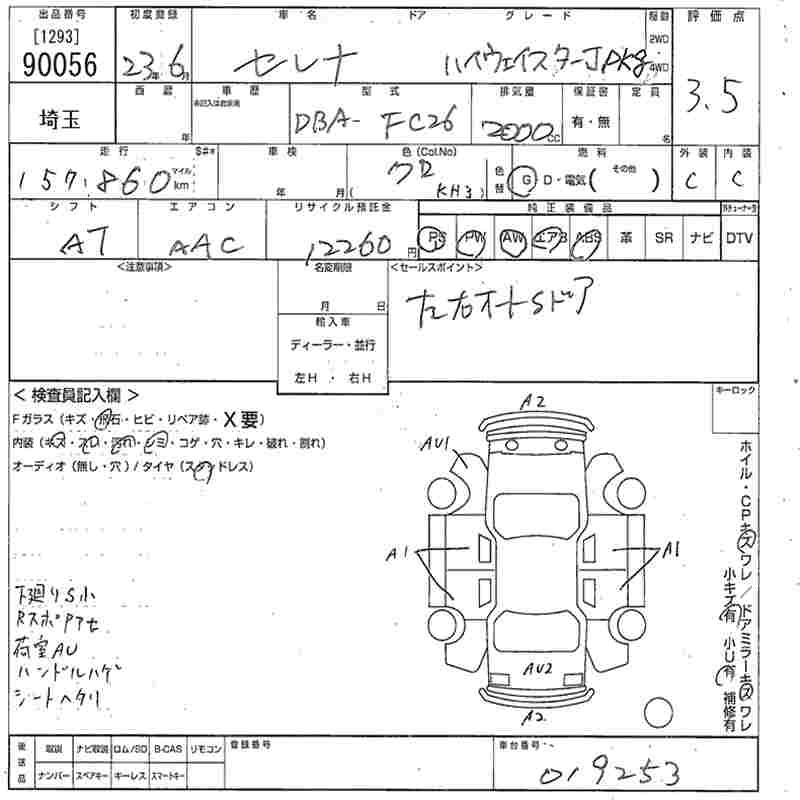 出品番号 初度登録 車名 ドア グレード 駆動 評価点
[1293]
90056 23年6月 セレナ ハイウェイスターJpkg 2WD 4WD 3.5
西暦 車歴 型式 排気量 保証書 定員
埼玉 年 未記入は自家用 DBA- FC26 2000cc 有・無 名
走行 $#* 車検 色(Col.No) 燃料 外装 内装
157,860 マイル km 年 月( クロ KH3) 色替 G D・電気( その他 ) C C
シフト エアコン リサイクル預託金 純正装備品
AT AAC 12260円 PS PW AW エアB ABS 革 SR ナビ DTV
<注意事項> 名変期限 <セールスポイント>
月 日 左右オートSドア
輸入車
ディーラー・並行
左H・右H
<検査員記入欄> キーロック
Fガラス(キズ・飛石・ヒビ・リペア跡・X要)
内装(キズ・スロ・汚れ・シミ・コゲ・穴・キレ・破れ・割れ)
オーディオ(無し・穴)/タイヤ(スタッドレス)
A2
AU1
A1 A1
AU2
A2
ホイル・CPキズワレ/ドアミラーキズワレ
小キズ有 小U有 補修有
下廻りS小
RスポPアセ
荷室AU
ハンドルハゲ
シートヘタリ
後送品 取説 ナビ取説 ロム/SD B-CAS リモコン 登録番号 車台番号
ナンバー スペアキー キーレス スマートキー 019253